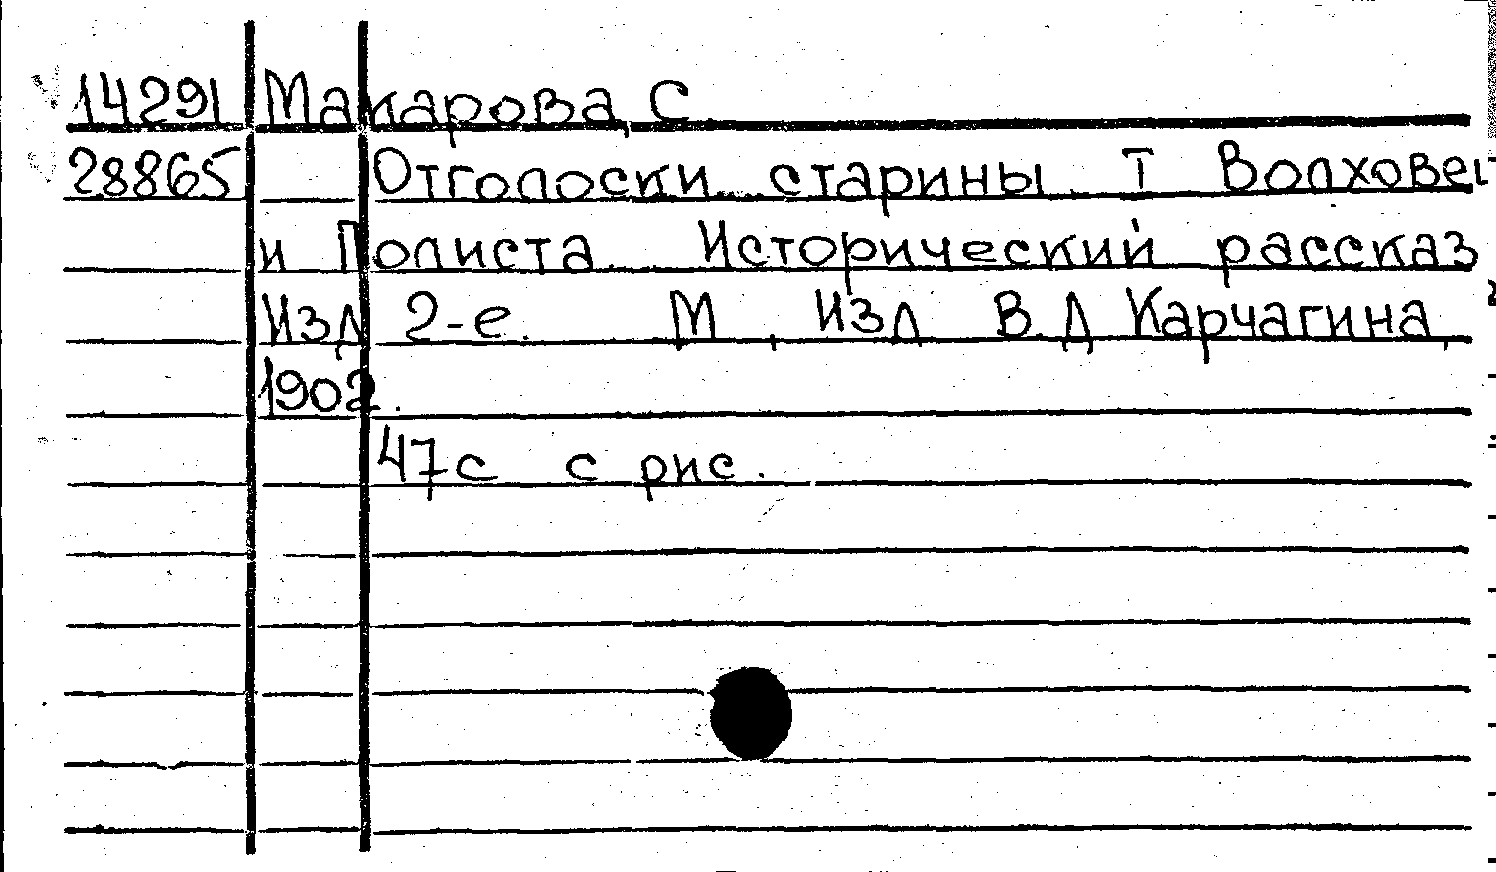 14291 Макарова, С
28865 Отголоски старины. Т Волховец
и Полиста. Исторический рассказ
Изд 2-е. М, Изд В.Д Карчагина,
1902.
47с с рис.